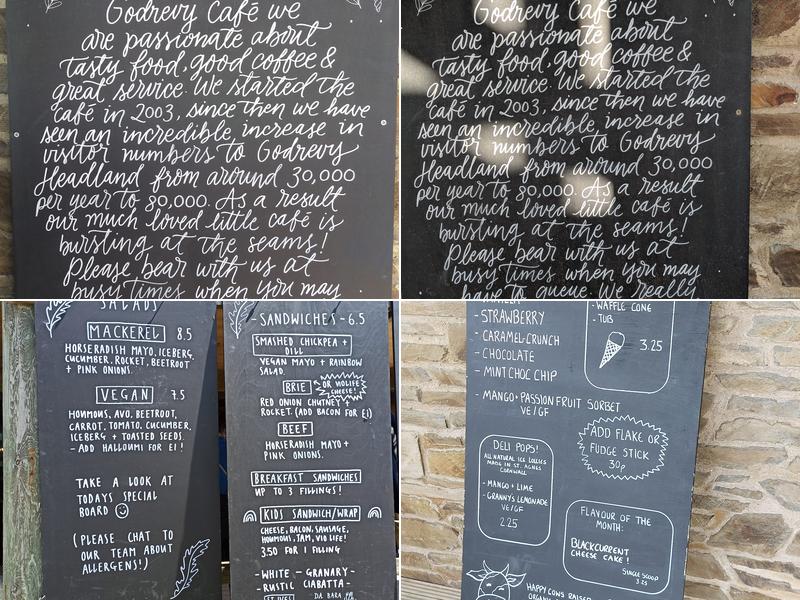 Godrevy Café we
are passionate about
tasty food, good coffee &
great service. We started the
café in 2003, since then we have
seen an incredible, increase in
visitor numbers to Godrevy
Headland from around 30,000
per year to 80,000. As a result
our much loved little café is
bursting at the seams!
Please bear with us at
busy times when you may
Godrevy Café we
are passionate about
tasty food, good coffee &
great service. We started the
café in 2003, since then we have
seen an incredible, increase in
visitor numbers to Godrevy
Headland from around 30,000
per year to 80,000. As a result
our much loved little café is
bursting at the seams!
Please bear with us at
busy times when you may
have to queue. We really
SALADS
MACKEREL 8.5
HORSERADISH MAYO, ICEBERG,
CUCUMBER, ROCKET, BEETROOT
+ PINK ONIONS.
VEGAN 7.5
HOUMOUS, AVO, BEETROOT,
CARROT, TOMATO, CUCUMBER,
ICEBERG + TOASTED SEEDS.
- ADD HALLOUMI FOR £1!
TAKE A LOOK AT
TODAYS SPECIAL
BOARD
(PLEASE CHAT TO
OUR TEAM ABOUT
ALLERGENS!)
- SANDWICHES - 6.5
SMASHED CHICKPEA +
DILL
VEGAN MAYO + RAINBOW
SALAD.
BRIE OR VIOLIFE
CHEESE!
RED ONION CHUTNEY +
ROCKET. (ADD BACON FOR £1)
BEEF
HORSERADISH MAYO +
PINK ONIONS.
BREAKFAST SANDWICHES
UP TO 3 FILLINGS!
KIDS SANDWICH/WRAP
CHEESE, BACON, SAUSAGE,
HOUMOUS, JAM, VIO LIFE!
3.50 FOR 1 FILLING
- WHITE - GRANARY -
- RUSTIC CIABATTA -
DA BARA
- STRAWBERRY
- CARAMEL CRUNCH
- CHOCOLATE
- MINT CHOC CHIP
- MANGO + PASSION FRUIT SORBET
VE/GF
- WAFFLE CONE
- TUB
3.25
ADD FLAKE OR
FUDGE STICK
30p
DELI POPS!
ALL NATURAL ICE LOLLIES
MADE IN ST. AGNES
CORNWALL
- MANGO + LIME
- GRANNY'S LEMONADE
VE/GF
2.25
FLAVOUR OF THE
MONTH:
BLACKCURRENT
CHEESE CAKE!
SINGLE SCOOP
3.25
HAPPY COWS RAISED